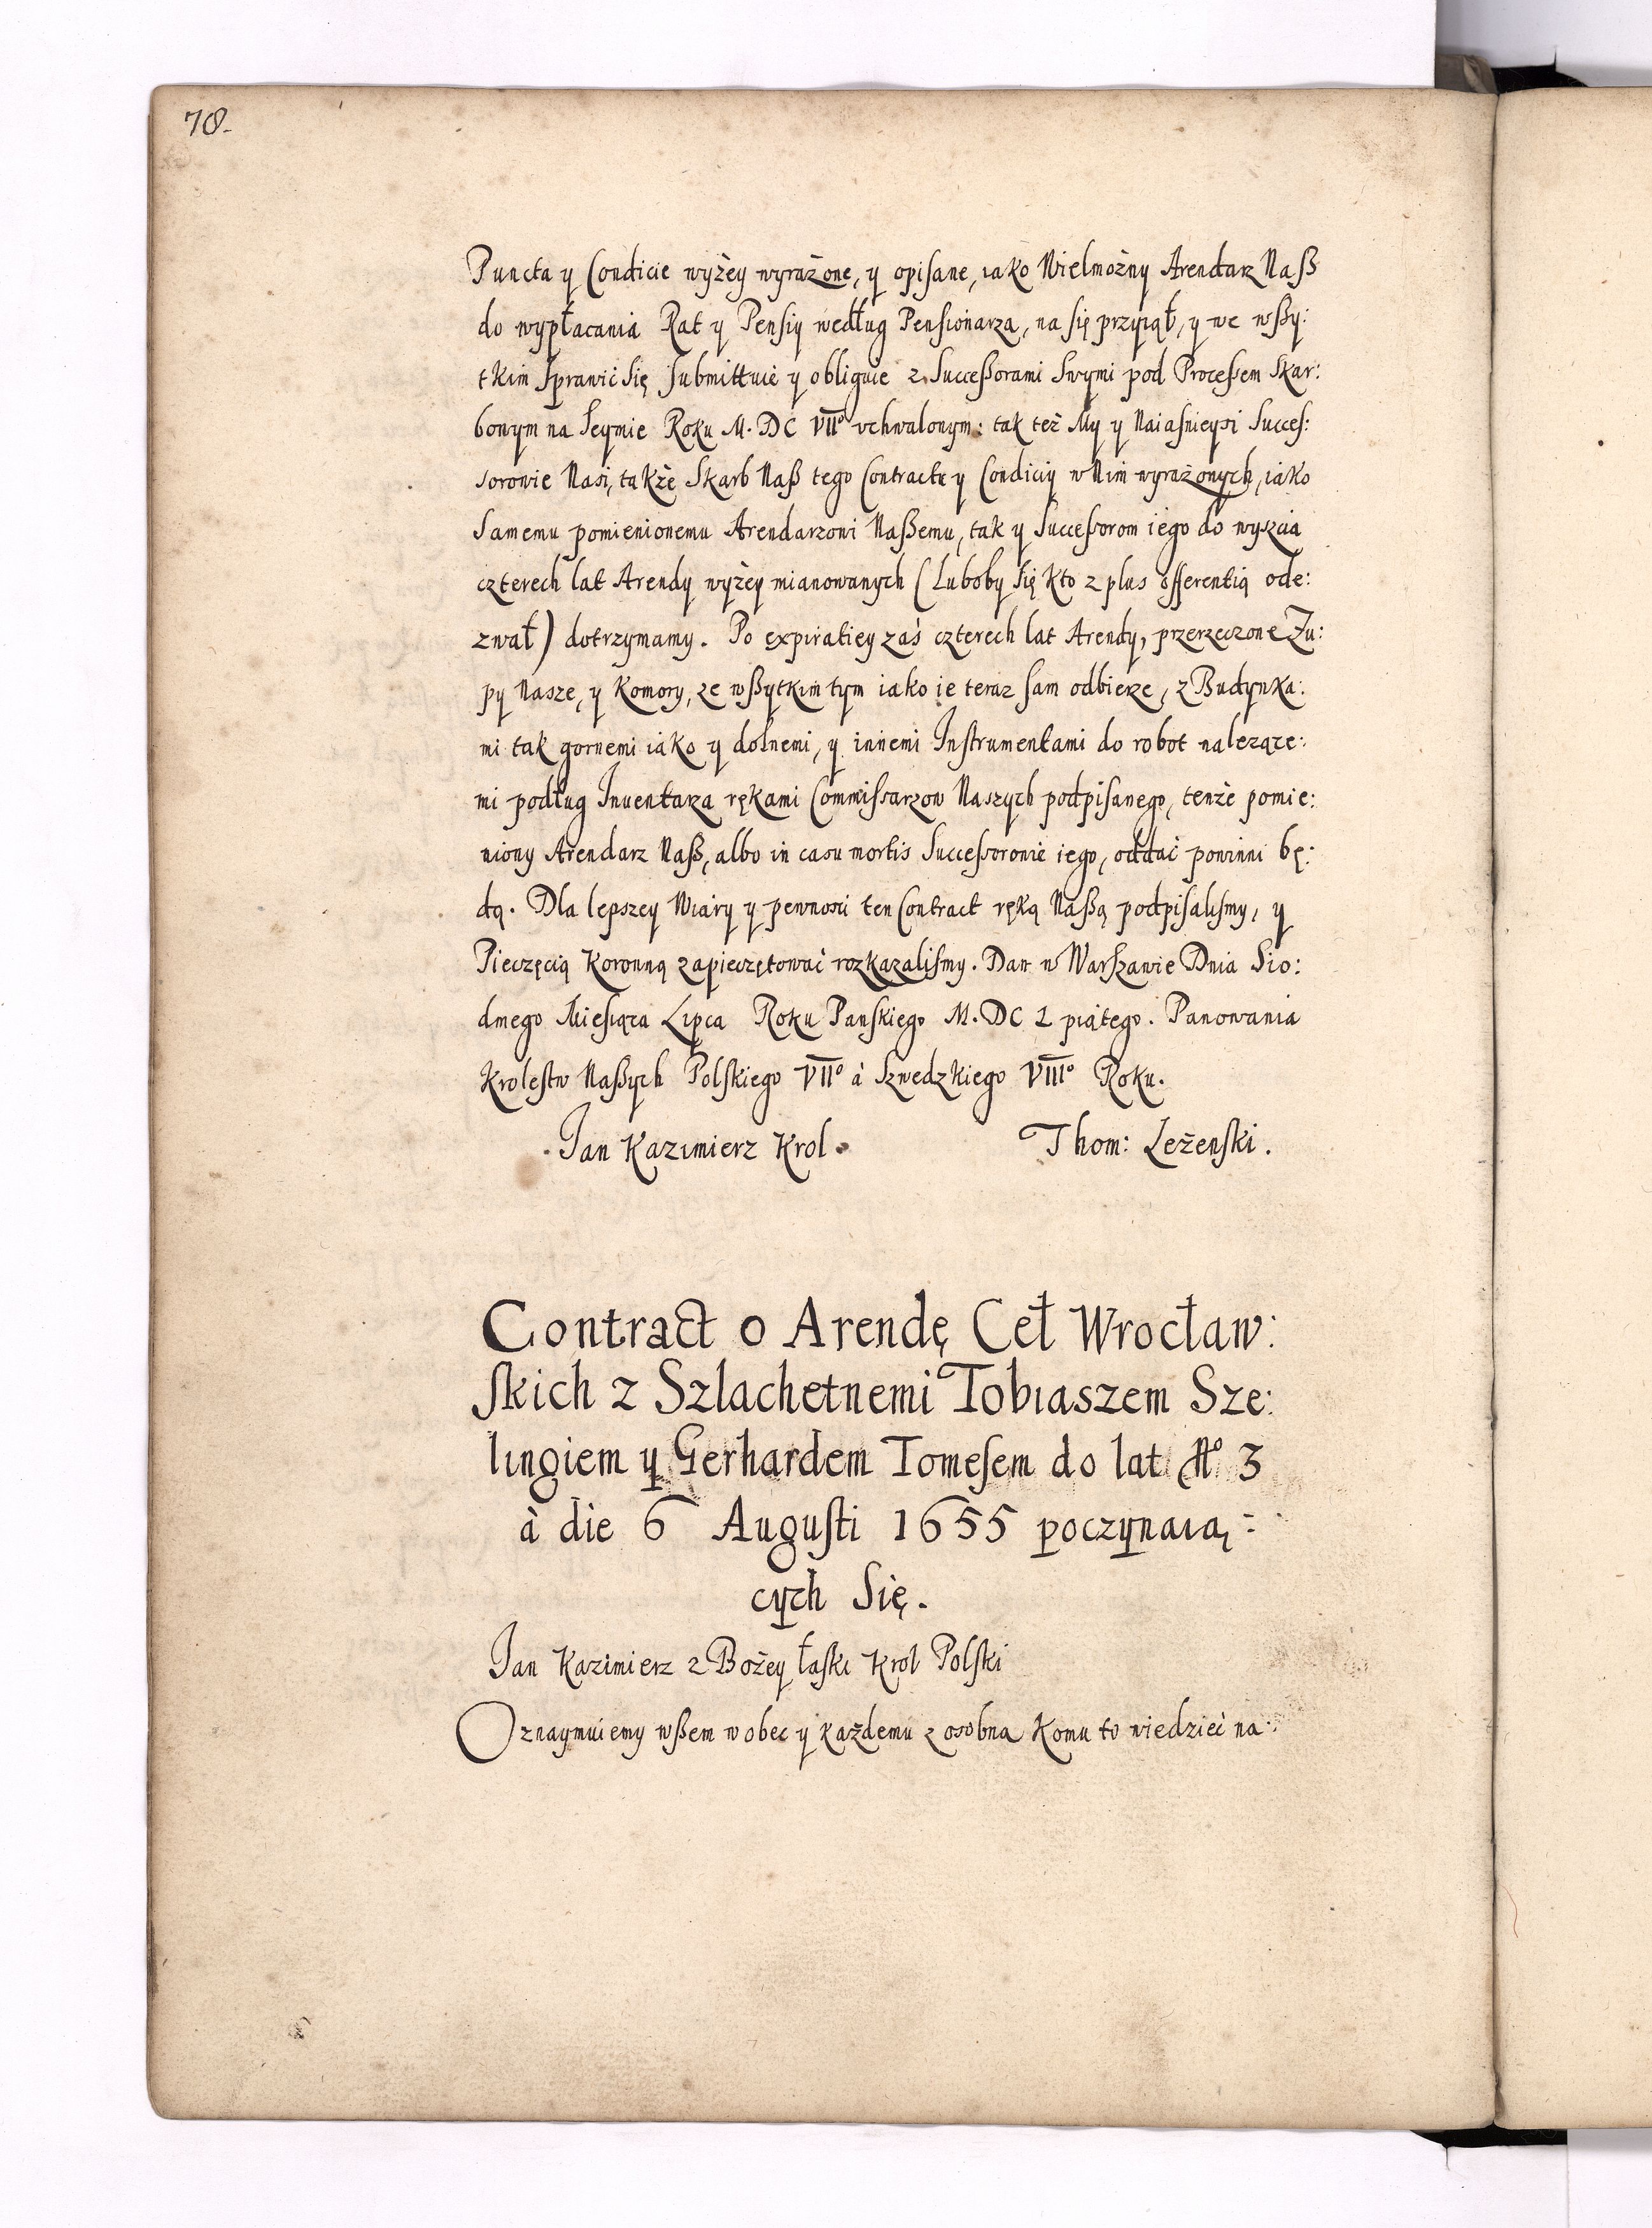 78.
Puncta y Condicie wyżey wyrażone, y opisane, iako Wielmożny Arendarz Naß
do wypłacania Rat y Pensiy według Pensionarza, na się przyiął, y we wßy:
tkim sprawić się submittuie y obliguie z Successorami Swymi pod Processem Skar:
bowym na Seymie Roku M. DC VII° vchwalonym: tak też My y Naiaśnieysi Succes:
sorowie Nasi, także Skarb Naß tego Contractu y Condiciy w Nim wyrażonych, iako
samemu pomienionemu Arendarzowi Naßemu, tak y Successorom iego do wyszcia
czterech lat Arendy wyżey mianowanych (Luboby się kto z plus offerentią ode:
zwał) dotrzymamy. Po expiratiey zaś czterech lat Arendy, przerzeczone Zu:
py Nasze, y Komory, ze wßytkim tym iako ie teraz sam odbierze, z Budynka:
mi tak gornemi iako y dolnemi, y innemi Instrumentami do robot nalezące:
mi podług Inuentarza rękami Commissarzow Naszych podpisanego, tenże pomie:
niony Arendarz Naß, albo in casu mortis Successorowie iego, oddać powinni bę:
dą. Dla lepszey Wiary y pewnosci ten Contract ręką Naßą podpisalismy, y
Pieczęcią Koronną zapieczętować rozkazalismy. Dan w Warszawie Dnia Sio:
dmego Miesiąca Lipca Roku Panskiego M. DC L piątego. Panowania
Krolestw Naßych Polskiego VII° à Szwedzkiego VIII° Roku.
Jan Kazimierz Krol. Thom: Leżenski.
Contract o Arendę Ceł Wrocław:
skich z Szlachetnemi Tobiaszem Sze:
lingiem y Gerhardem Tomesem do lat N° 3
à die 6 Augusti 1655 poczynaią:
cych Się.
Jan Kazimierz z Bożey łaski Krol Polski
Oznaymuiemy wßem wobec y każdemu z osobna Komu to wiedzieć na: